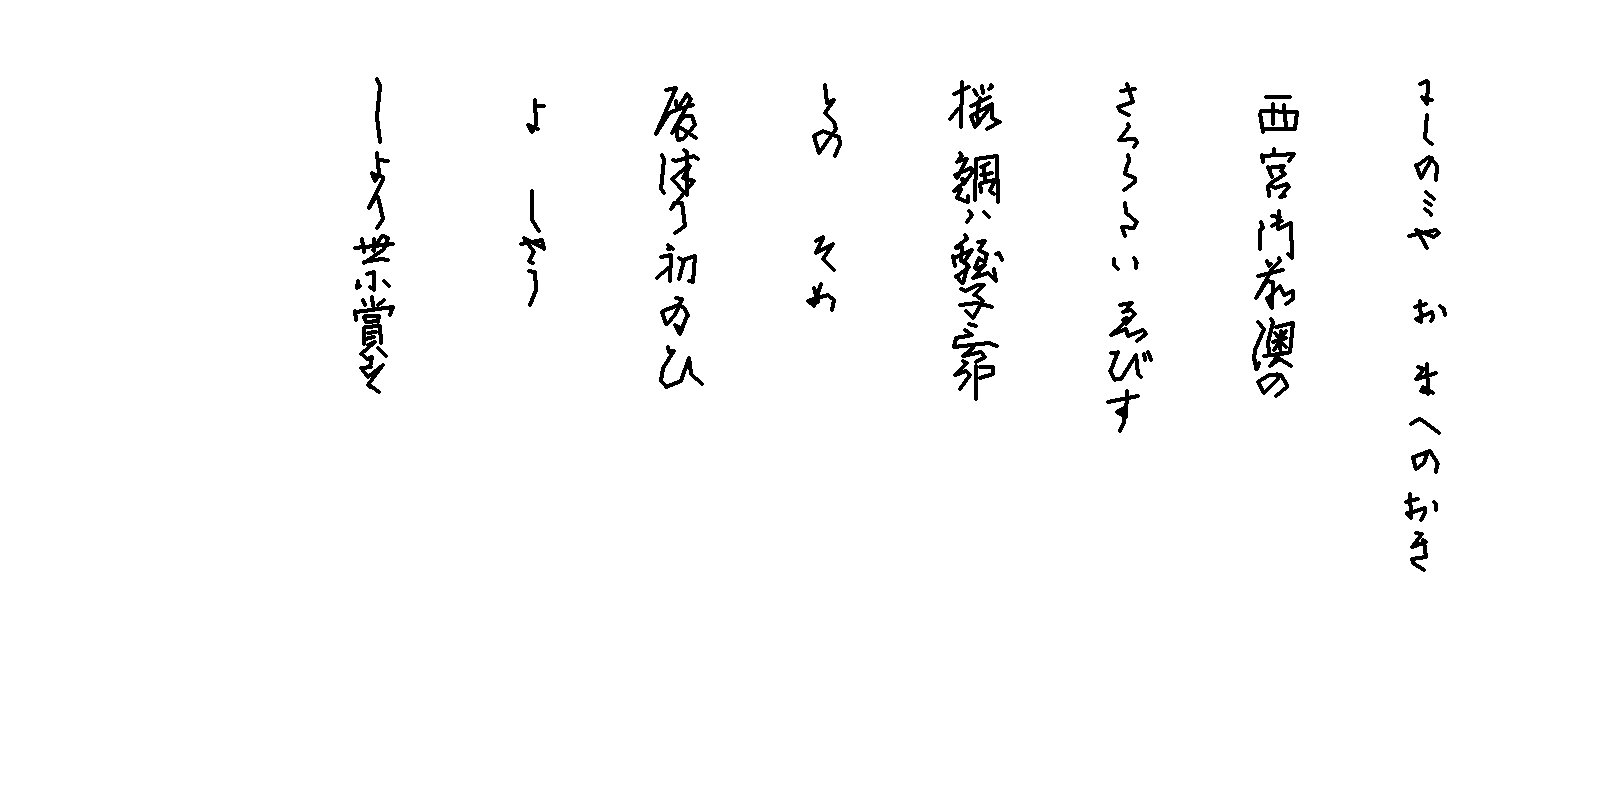 にしのミや お まへのおき
西宮御前澳の
さくらたい ゑびす
桜鯛ハ蛭子三郎
との そめ
殿津り初めひ
よ しやう
しより世に賞す